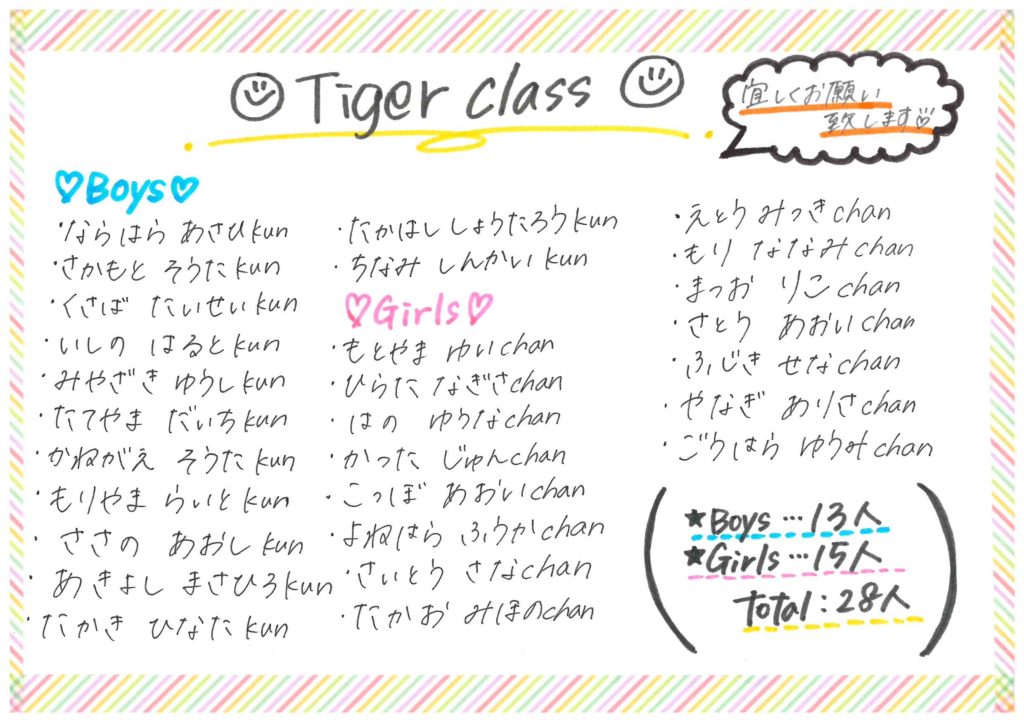 Tiger class
宜しくお願い
致します♡
♡Boys♡
・ならはら あさひkun
・さかもと そうたkun
・くさば たいせいkun
・いしの はるとkun
・みやざき ゆうしkun
・たてやま だいちkun
・かねがえ そうたkun
・もりやま らいとkun
・ささの あおしkun
・あきよし まさひろkun
・たかき ひなたkun
・たかはし しょうたろうkun
・ちなみ しんかいkun
♡Girls♡
・もとやま ゆいchan
・ひらた なぎさchan
・はの ゆうなchan
・かった じゅんchan
・こっぽ あおいchan
・よねはら ふうかchan
・さいとう さなchan
・たかお みほのchan
・えとう みつきchan
・もり ななみchan
・まつお りこchan
・さとう あおいchan
・ふじき せなchan
・やなぎ ありさchan
・ごうはら ゆうみchan
★Boys…13人
★Girls…15人
total:28人